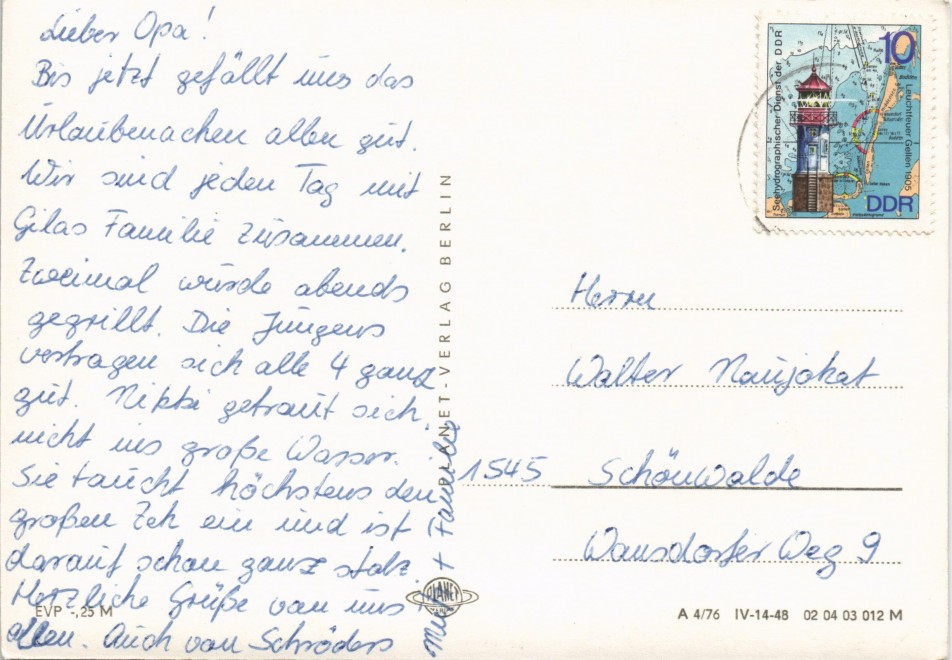 Lieber Opa!
Bis jetzt gefällt uns das
Urlaubmachen allen gut.
Wir sind jeden Tag mit
Gilas Familie zusammen.
Zweimal wurde abends
gegrillt. Die Jungens
vertragen sich alle 4 ganz
gut. Nikki getraut sich
nicht ins große Wasser.
Sie taucht höchstens den
großen Zeh ein und ist
darauf schon ganz stolz.
Herzliche Grüße von uns
allen. Auch von Schröders
+ Familie
PLANET-VERLAG BERLIN
PLANET
EVP -,25 M
Seehydrographischer Dienst der DDR
10
Leuchtfeuer Gellen 1905
DDR
Herrn
Walter Naujokat
1545 Schönwalde
Wansdorfer Weg 9
A 4/76 IV-14-48 02 04 03 012 M